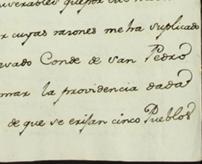 r cuyas razones me ha suplicado
vado Conde de San Pedro
mar la providencia dada
de que se erijan cinco Pueblos